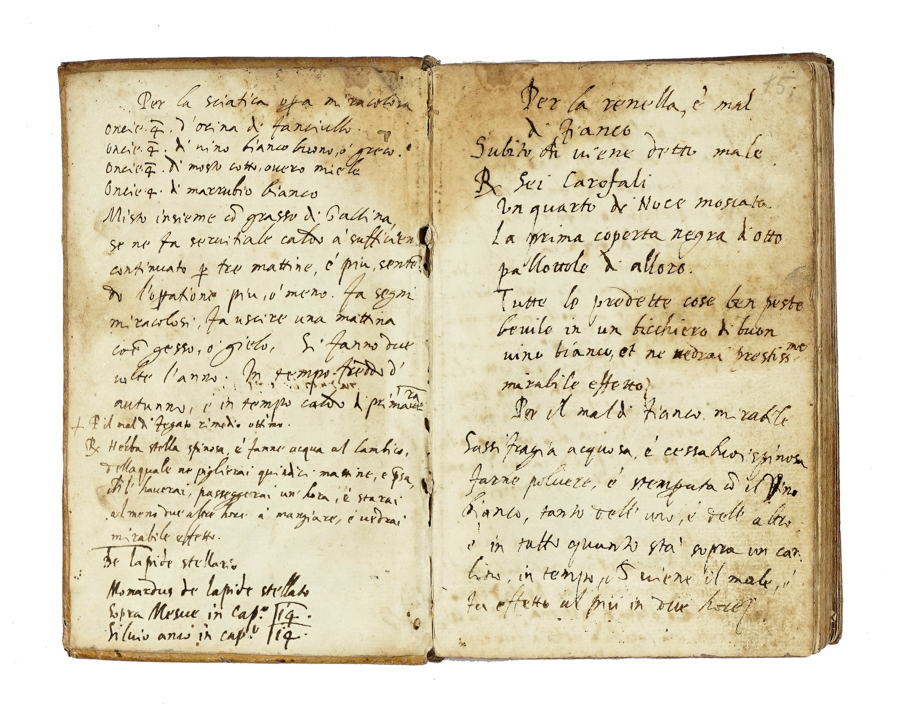 Per la sciatica cosa miracolosa
oncie 4. d'orina di fanciullo.
oncie 4. di vino bianco buono, o' greco.
oncie 4. di mosto cotto, overo miele
Oncie 4. di marrubio bianco
Misto insieme cō grasso di Gallina,
se ne fa servitiale caldo à sufficien.
continuato p tre mattine, e' piu, senten
do l'opatione piu, ò meno. fa segni
miracolosi, fa uscire una mattina
come gesso, o' gielo, Si fanno due
volte l'anno. In tempo freddo d'
autunno, e in tempo caldo di primavera
+ P il mal di fegato rimedio ottimo.
℞ Herba stella spinosa, e' fanne acqua al lambico,
della quale ne piglierai quindici mattine, e psa,
ch l'haverai, passeggerai un' hora, e' starai
almeno due altre hore a' mangiare, e' vedrai
mirabile effetto.
De lapide stellario
Monardus de lapide stellato
sopra Mesue in cap.º 14.
Silvio anco in cap.º 14.
15.
Per la renella, è mal
di fianco
Subito ch viene detto male
℞ Sei Garofali
Un quarto de Noce moscata
La prima coperta negra d'otto
pallottole di alloro.
Tutte le predette cose ben peste
bevile in un bicchiero di buon
vino bianco, et ne vedrai prestissme
mirabile effetto.
Per il mal di fianco mirabile
Sassifragia acquosa, e' cessabuoi spinosa
farne polvere, e' stemperata cō il Vino
bianco, tanto dell' uno, e dell' altro
e in tutto quanto sta' sopra un car
lino, in tempo, ch viene il male, e'
fa effetto al piu in due hore.